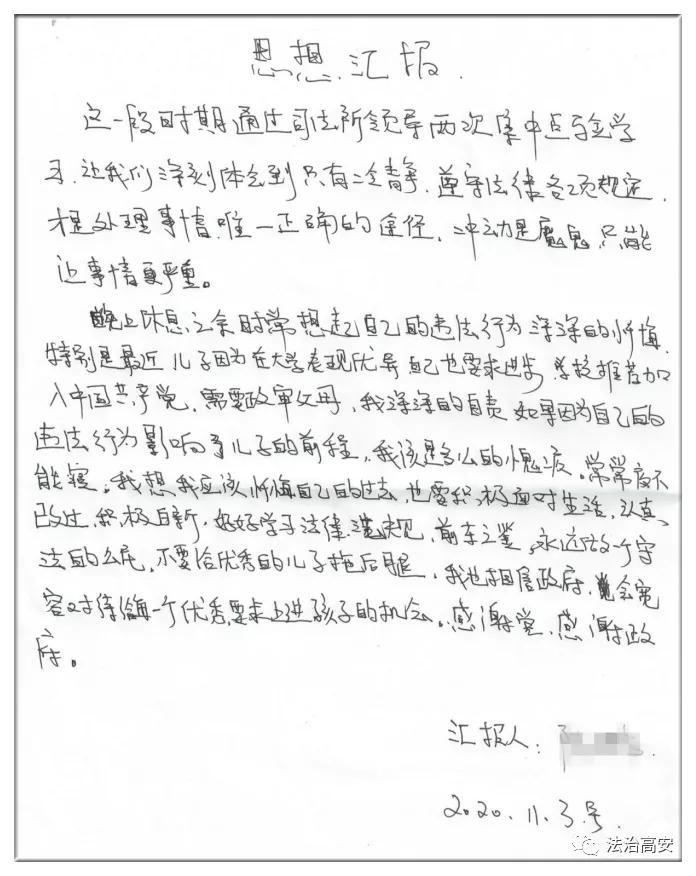 思想汇报
这一段时期通过司法所领导两次集中点与会学
习.让我们深刻体会到只有冷静.遵守法律各项规定.
才是处理事情.唯一正确的途径.冲动是魔鬼.只能
让事情更严重。
晚上休息之余时常想起自己的违法行为深深的忏悔.
特别是最近儿子因为在大学表现优异自己也要求进步.学校推荐加
入中国共产党.需要政审父母,我深深的自责.如果因为自己的
违法行为影响了儿子的前程,我该是多么的愧疚。常常夜不
能寝。我想我应该忏悔自己的过去,也要积极面对生活.认真
改过,积极自新.好好学习法律法规,前车之鉴,永远做一个守
法的公民,不要给优秀的儿子拖后腿,我也相信政府,会宽
容对待每一个优秀要求上进孩子的机会。感谢党.感谢政
府。
汇报人:
2020.11.3号.
法治高安